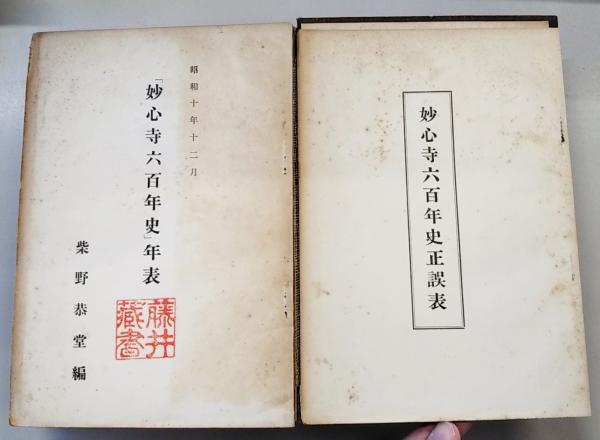 昭和十年十二月
「妙心寺六百年史」年表
柴野恭堂編
藤井
藏書
妙心寺六百年史正誤表